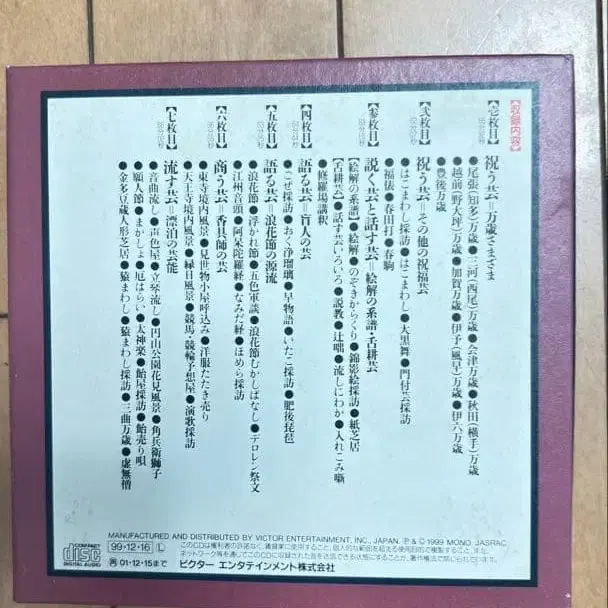 【収録内容】
【壱枚目】
祝う芸＝万歳さまざま
●尾張(知多)万歳●三河(西尾)万歳●会津万歳●秋田(横手)万歳
●越前(野大坪)万歳●加賀万歳●伊予(風早)万歳●伊六万歳
●豊後万歳
【弐枚目】
祝う芸＝その他の祝福芸
●はこまわし採訪●はこまわし●大黒舞●門付芸採訪
●福俵●春田打●春駒
【参枚目】
説く芸と話す芸＝絵解の系譜・舌耕芸
【絵解の系譜】●絵解●のぞきからくり●錦影絵採訪●紙芝居
【舌耕芸】●話す芸いろいろ●説教●辻咄●流しにわか●入れこみ噺
●修羅場講釈
【四枚目】
語る芸＝盲人の芸
●ごぜ採訪●おく浄瑠璃●早物語●いたこ採訪●肥後琵琶
【五枚目】
語る芸＝浪花節の源流
●浪花節●浮かれ節●五色軍談●浪花節むかしばなし●デロレン祭文
●江州音頭●阿呆陀羅経●なみだ経●ほめら採訪
【六枚目】
商う芸＝香具師の芸
●東寺境内風景●見世物小屋呼込み●洋服たたき売り
●天王寺境内風景●縁日風景●競馬・競輪予想屋●演歌採訪
【七枚目】
流す芸＝漂泊の芸能
●音曲流し●声色屋●立琴流し●円山公園花見風景●角兵衛獅子
●願人節●まかしょ●厄はらい●太神楽●飴屋採訪●飴売り唄
●金多豆蔵人形芝居●猿まわし●猿まわし採訪●三曲万歳●虚無僧
MANUFACTURED AND DISTRIBUTED BY VICTOR ENTERTAINMENT, INC., JAPAN. Ⓟ & © 1999 MONO. JASRAC
COMPACT
disc
DIGITAL AUDIO
99・12・16 Ⓛ
再 01・12・15まで
このCDは権利者の許諾なく、賃貸業に使用すること、個人的な範囲を超える使用目的で複製すること、また、
ネットワーク等を通じてこのCDに収録された音を送信できる状態にすることが、著作権法で禁じられています。
ビクター エンタテインメント株式会社